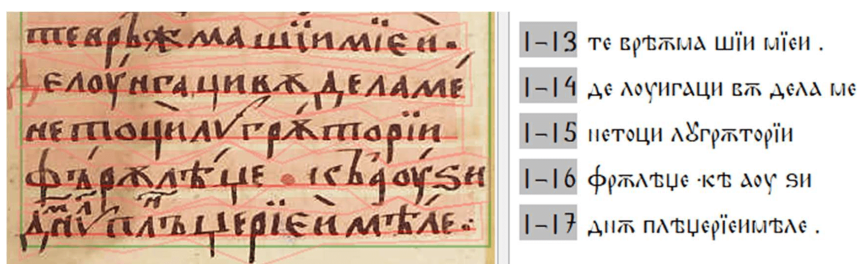 теврѣѫма шїимїей.
Делоу́игацивѫ деламе́
нетоци̇лꙋгрѫ́торїи
фа́рѫлѣ́џе · кѣаоу́ѕи
днꙋ плъџерїеймѣле.
1-13 те врѣѫма шїи мїеи .
1-14 де лоуигаци вѫ дела ме
1-15 нетоци лꙋгрѫторїи
1-16 фрѫлѣџе ·кѣ аоу ѕи
1-17 днѫ плѣџерїеимѣле .